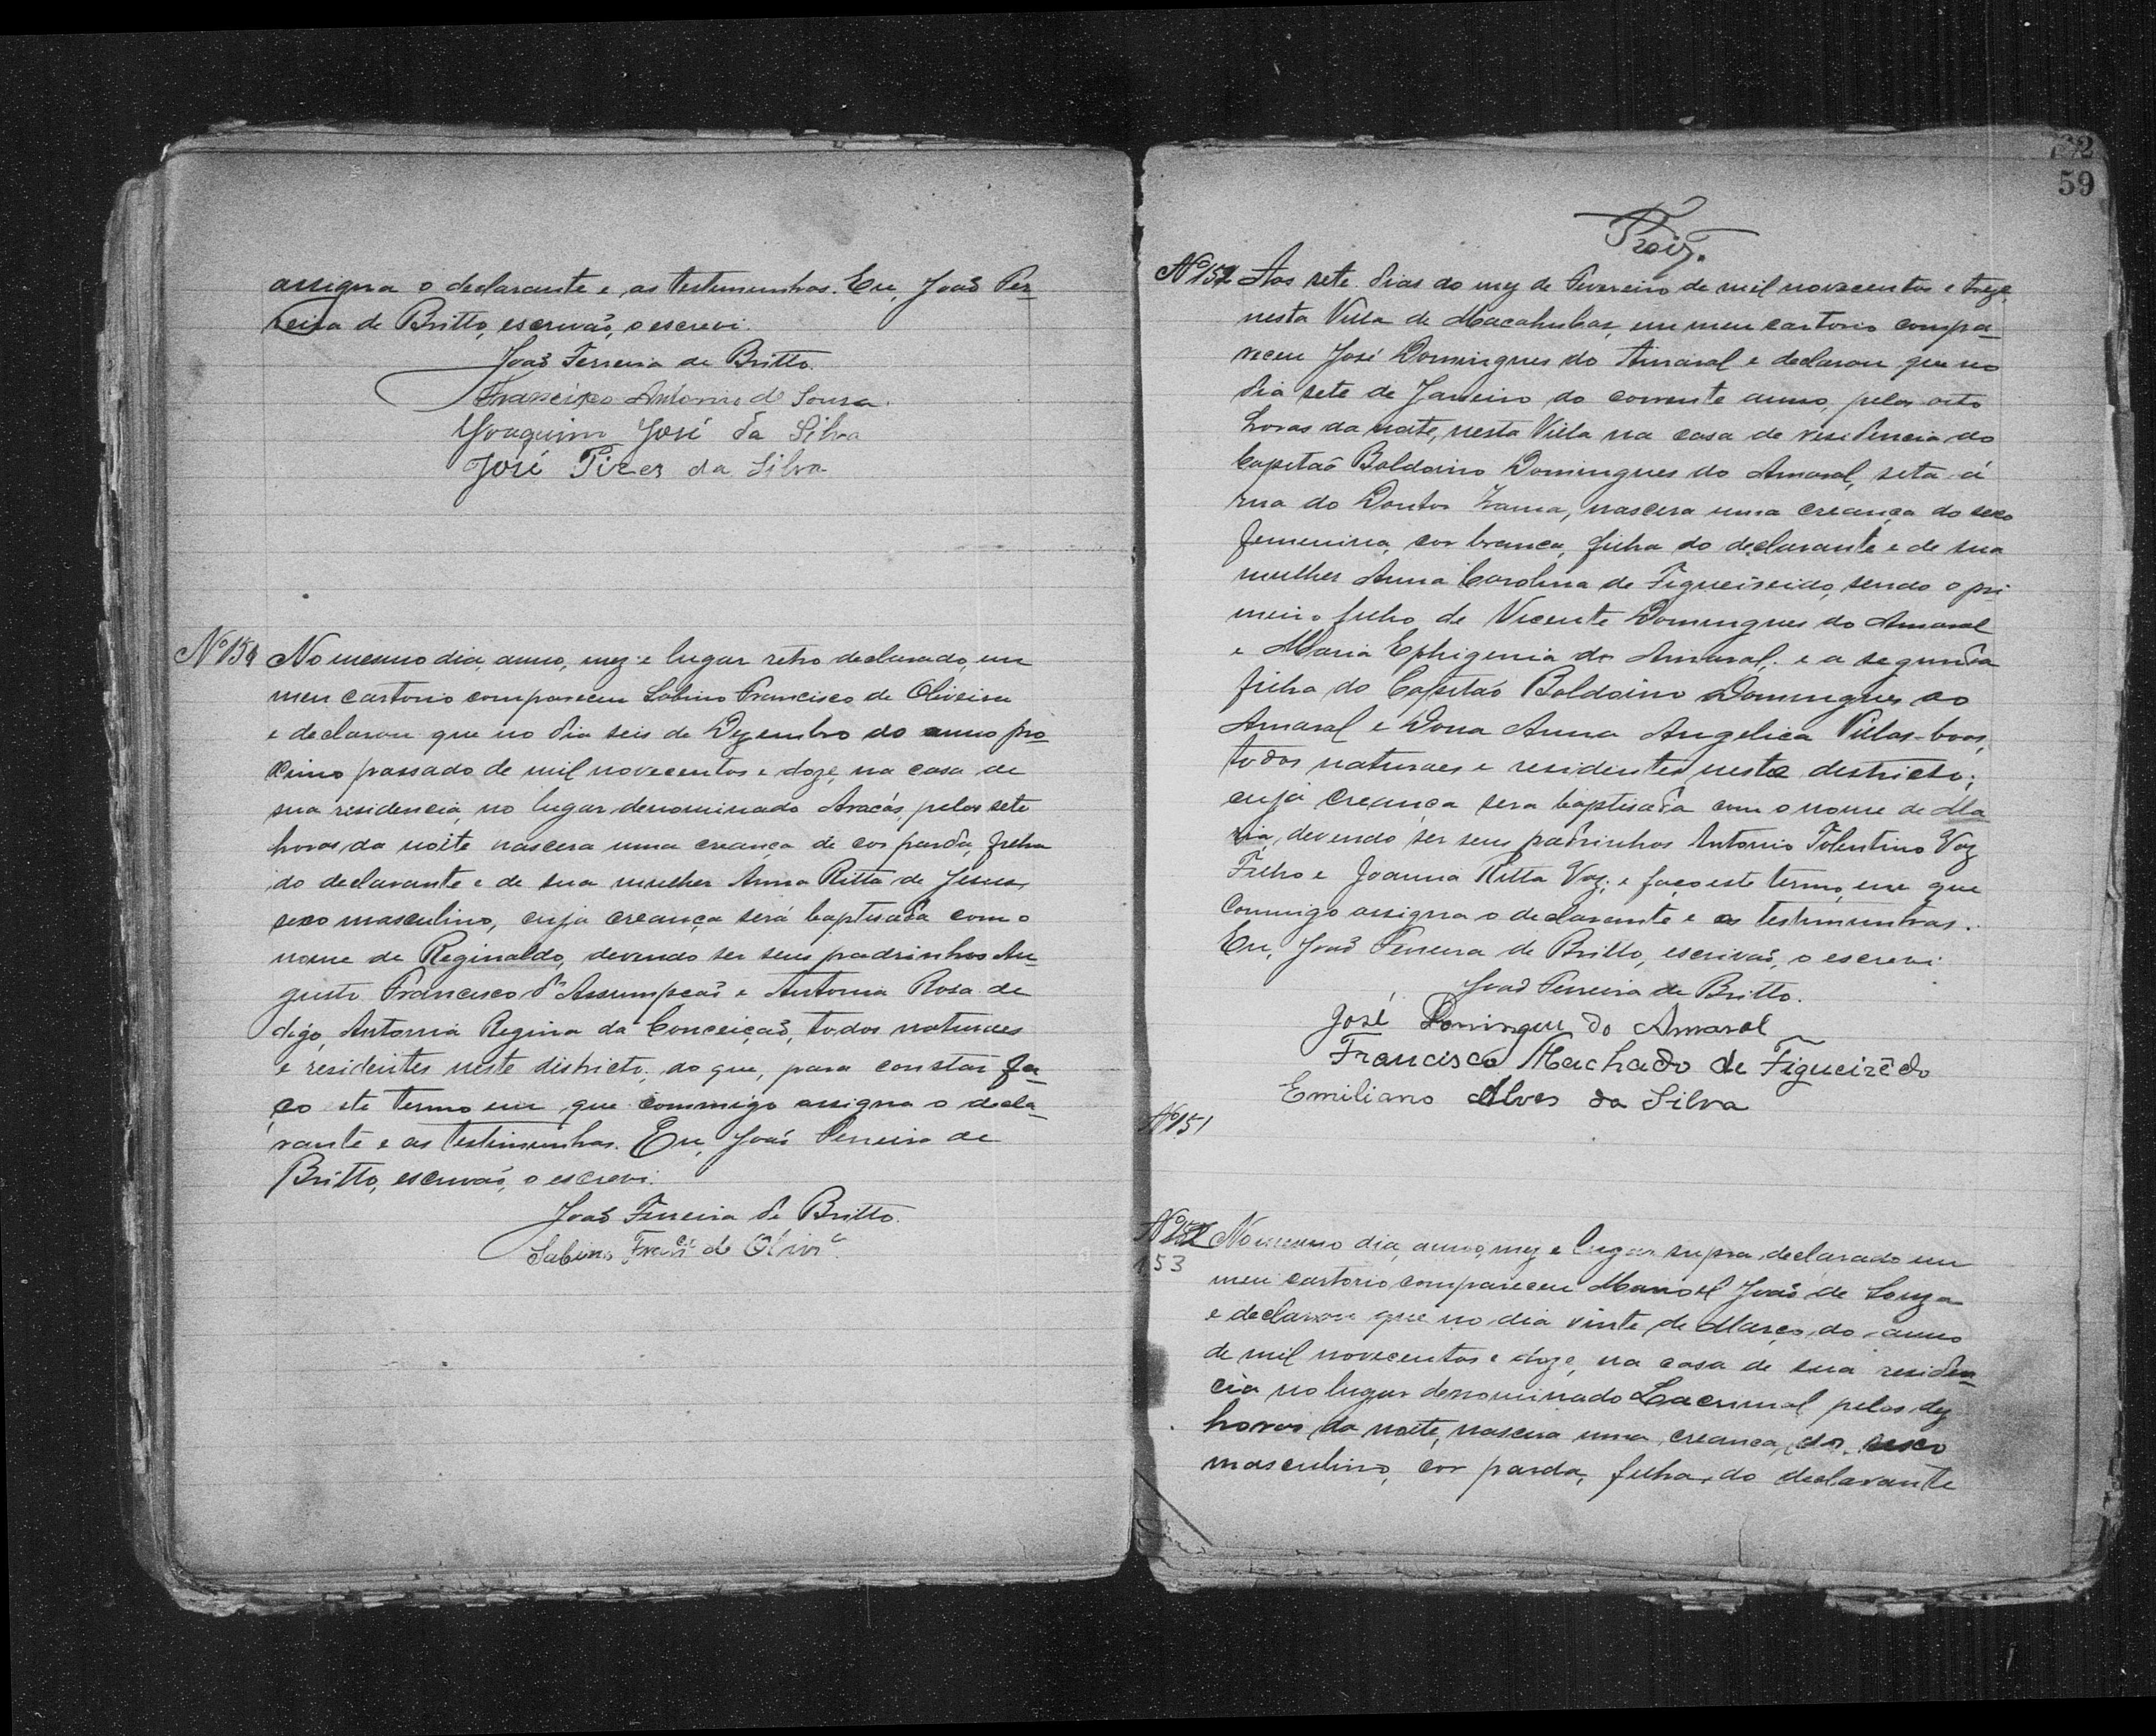 assigna o declarante e as testemunhas. Eu, João Fer-
reira de Britto, escrivão, o escrevi.
João Ferreira de Britto.
Francisco Antonio de Sousa.
Joaquim José da Silva
José Pires da Silva
Nº 151 No mesmo dia, anno, mez e lugar retro declarado, em
meu cartorio compareceu Sabino Francisco de Oliveira
e declarou que no dia seis de Dezembro do anno pro-
ximo passado de mil novecentos e doze, na casa de
sua residencia, no lugar denominado Aracás, pelas sete
horas da noite nascera uma creança de cor parda, filha
do declarante e de sua mulher Anna Ritta de Jesus,
sexo masculino, cuja creança será baptisada com o
nome de Reginaldo, devendo ser seus padrinhos Au-
gusto Francisco d'Assumpção e Antonia Rosa de
digo, Antonia Regina da Conceição, todos naturaes
e residentes neste districto; do que, para constar fa-
ço este termo em que commigo assigna o decla-
rante e as testemunhas. Eu, João Ferreira de
Britto, escrivão, o escrevi.
João Ferreira de Britto.
Sabino Franci de Olivra
59
Nº 152 Aos sete dias do mez de Fevereiro de mil novecentos e treze
nesta Villa de Macahubas, em meu cartorio compa-
receu José Domingues do Amaral e declarou que no
dia sete de Janeiro do corrente anno, pelas oito
horas da noite, nesta Villa na casa de residencia do
Capitão Baldoino Domingues do Amaral, seta á
rua do Doutor Zama, nascera uma creança do sexo
femenino, cor branca, filha do declarante e de sua
mulher Anna Carolina de Figueireido, sendo o pri
meiro filho de Vicente Domingues do Amaral
e Maria Ephigenia do Amaral, e a segunda
filha do Capitão Baldoino Domingues do
Amaral e Dona Anna Angelica Villas-boas,
todos naturaes e residentes neste districto;
cuja creança sera baptisada com o nome de Ma
ria, devendo ser seus padrinhos Antonio Tolentino Vaz
Filho e Joanna Ritta Vaz; e faço este termo, em que
commigo assigna o declarante e as testemunhas.
Eu, João Ferreira de Britto, escrivão, o escrevi
João Ferreira de Britto.
José Domingues do Amaral
Francisco Machado de Figueirêdo
Emiliano Alves da Silva
Nº 151
Nº No mesmo dia, anno, mez e lugar supra declarado em
153
meu cartorio compareceu Manoel João de Souza
e declarou que no dia vinte de Março do anno
de mil novecentos e doze, na casa de sua residen-
cia no lugar denominado Lacrimal, pelas dez
horas da noite, nascera uma creança do sexo
masculino, cor parda, filha do declarante